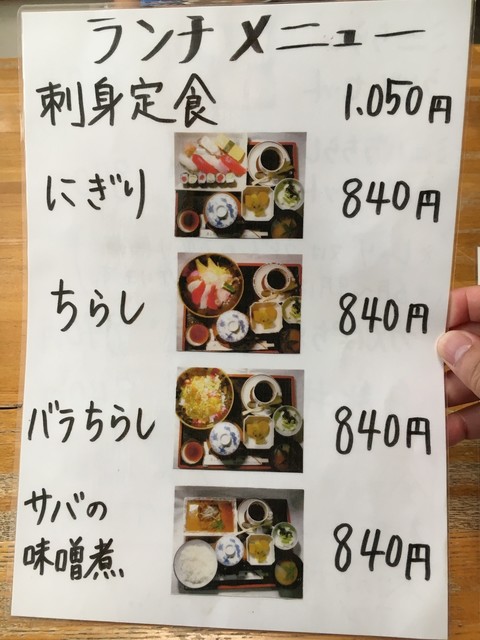 ランチメニュー
刺身定食 1.050円
にぎり 840円
ちらし 840円
バラちらし 840円
サバの
味噌煮 840円